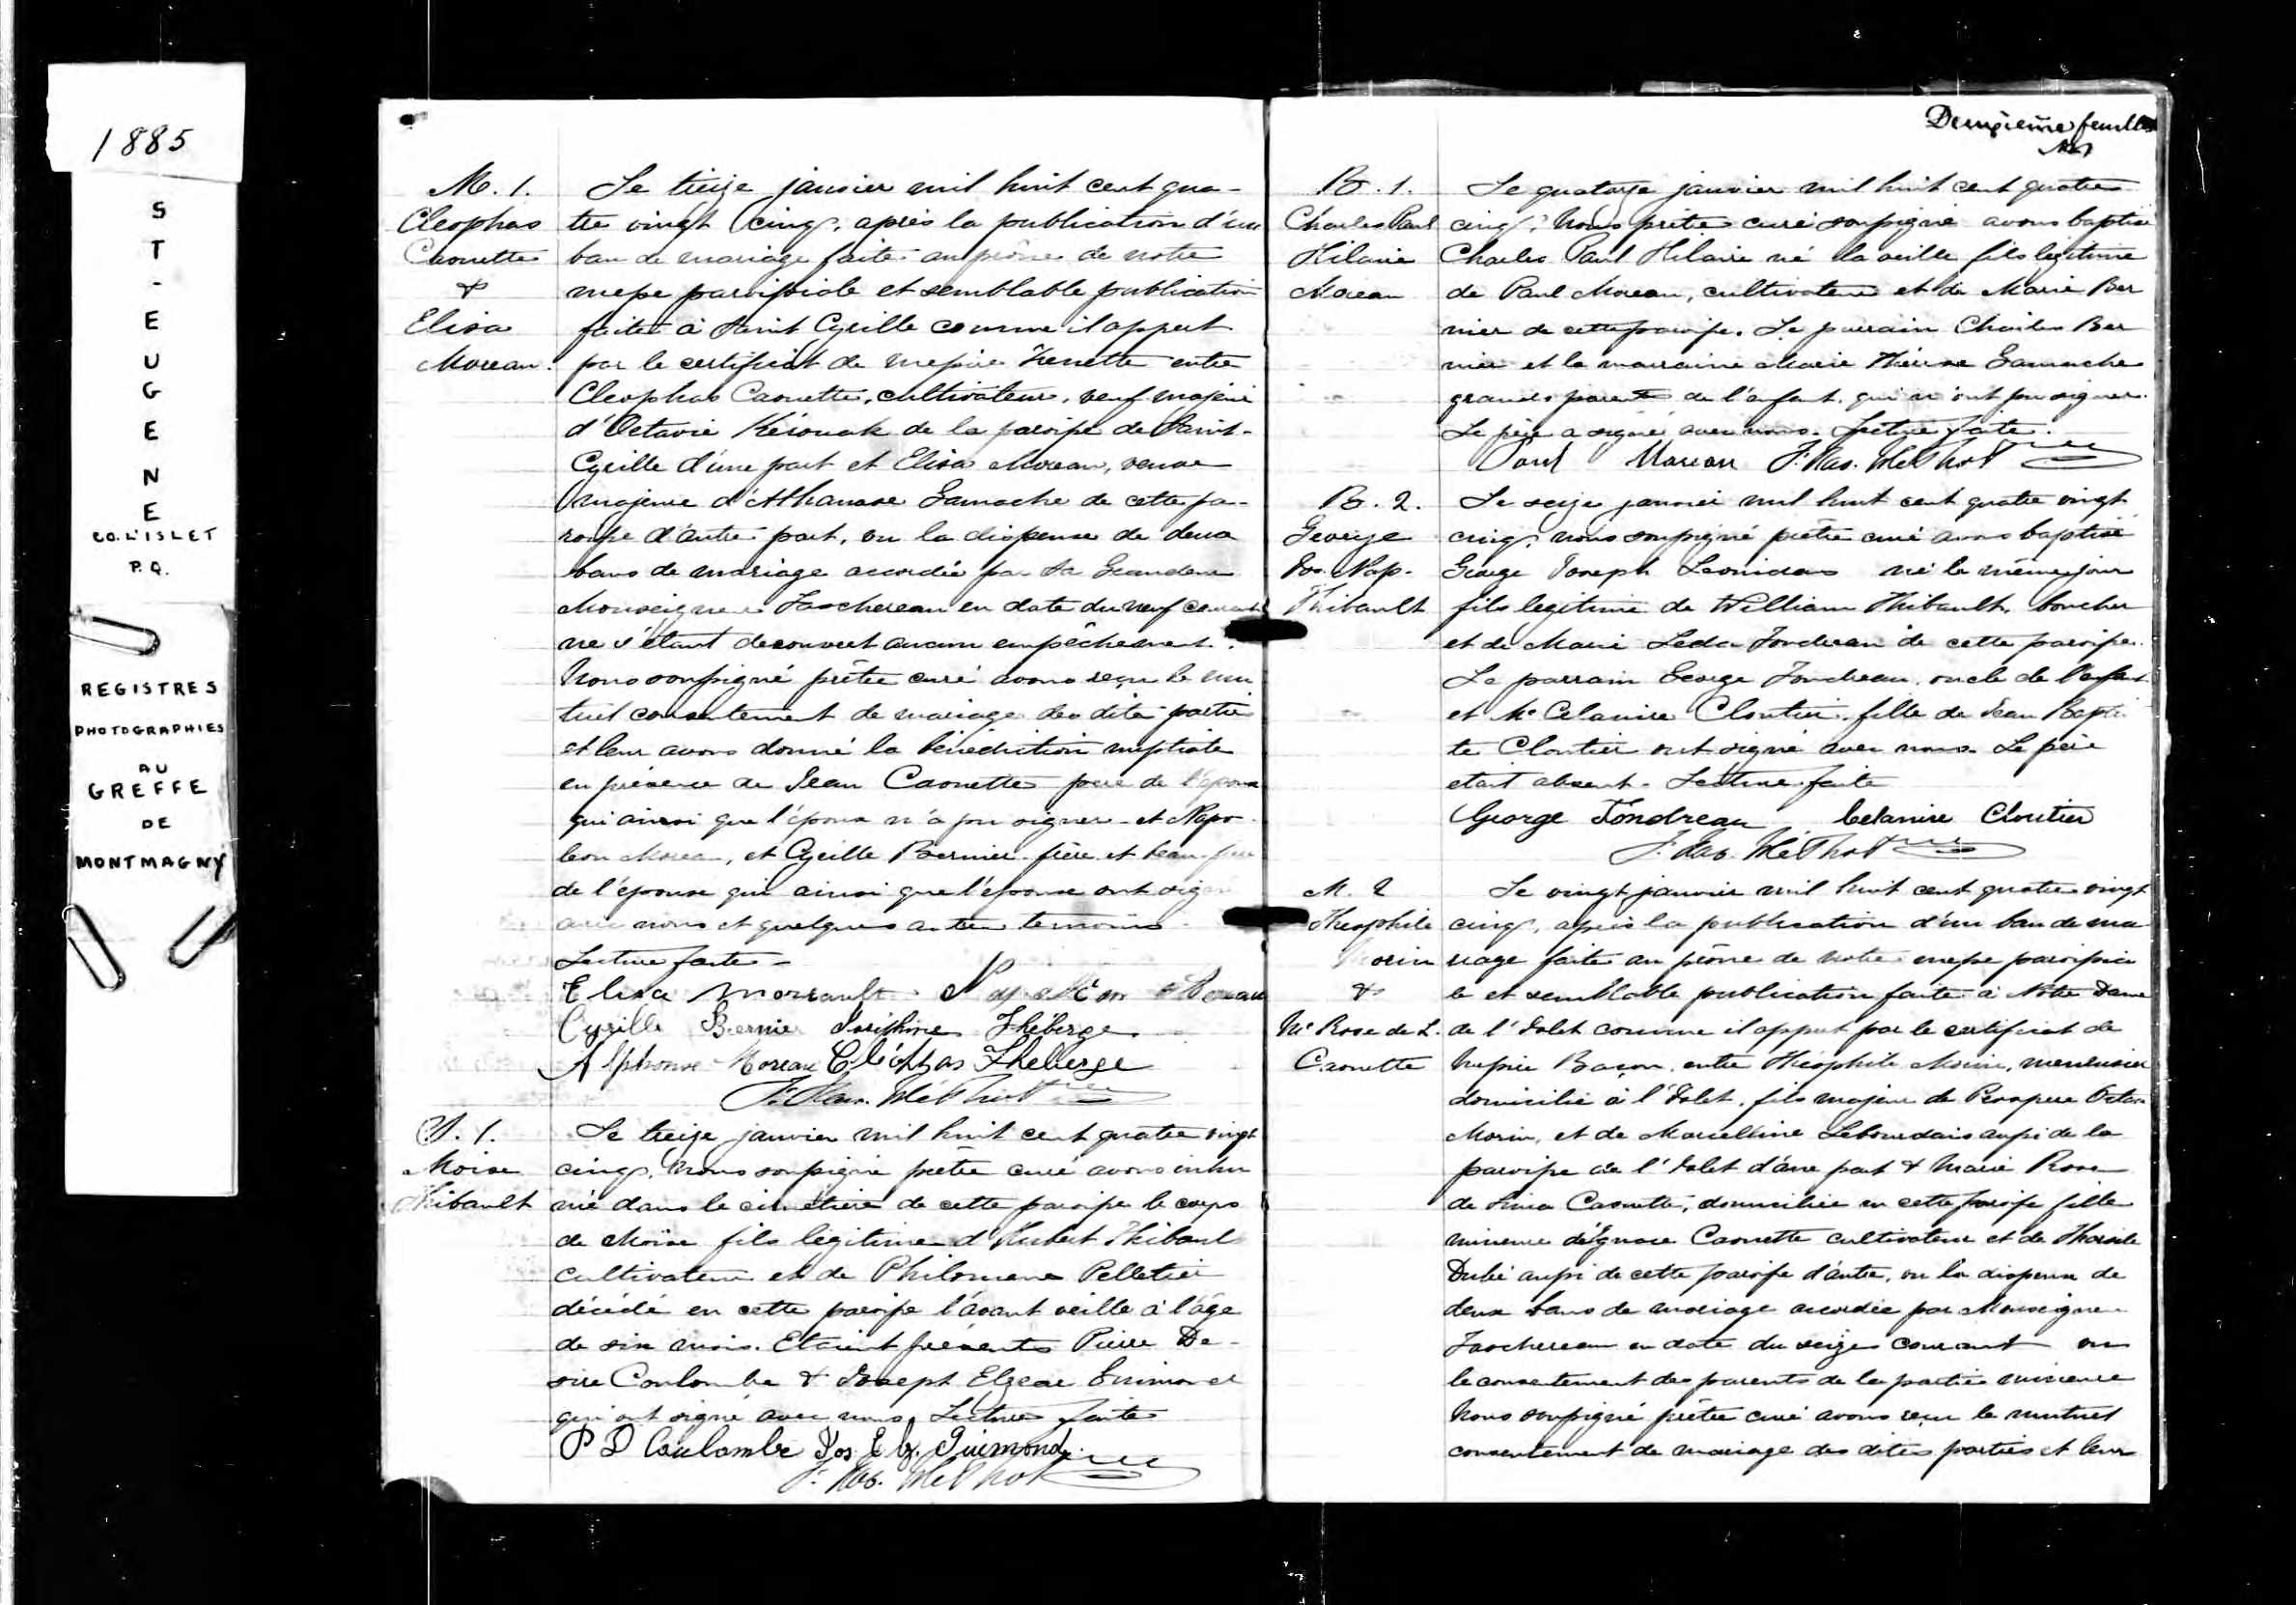 1885
S
T
-
E
U
G
E
N
E
CO. L'ISLET
P.Q.
REGISTRES
PHOTOGRAPHIES
AU
GREFFE
DE
MONTMAGNY
M. 1.
Cleophas
Caouette
&
Elisa
Moreau.
Le treize janvier mil huit cent qua-
tre vingt cinq, après la publication d'un
ban de mariage faite au prône de notre
messe paroissiale et semblable publication
faite à Saint Cyrille comme il appert
par le certificat de messire Frenette entre
Cleophas Caouette, cultivateur, veuf majeur
d'Octavie Kérouak de la paroisse de Saint-
Cyrille d'une part et Elisa Moreau, veuve
majeure d'Athanase Gamache de cette pa-
roisse d'autre part, vu la dispense de deux
bans de mariage accordée par Sa Grandeur
Monseigneur Taschereau en date du neuf courant
ne s'étant decouvert aucun empêchement.
Nous soussigné prêtre curé avons reçu le mu
tuel consentement de mariage des dites parties
et leur avons donné la bénédiction nuptiale
en présence de Jean Caouette père de l'époux
qui ainsi que l'époux n'a pu signer et Napo-
leon Moreau, et Cyrille Bernier frère et beau-frère
de l'épouse qui ainsi que l'épouse ont signé
avec nous et quelques autres temoins.
Lecture faite -
Elisa Moreault Napoléon Moreau
Cyrille Bernier Josephine Théberge
Alphonse Moreau Cléophas Theberge
F. Xav. Méthot
S. 1.
Moise
Thibault
Le treize janvier mil huit cent quatre vingt
cinq, Nous soussigné prêtre curé avons inhu
mé dans le cimetière de cette paroisse le corps
de Moïse fils légitime d'Hubert Thibault
cultivateur et de Philomene Pelletier
décédé en cette paroisse l'avant veille à l'âge
de six mois. Etaient présents Pierre De-
sire Coulombe & Joseph Elzear Guimond
qui ont signé avec nous, Lecture faite
P D Coulombe Jos. Elz. Guimond
F. Xav. Méthot
Deuxième feuillet
B. 1.
Charles Paul
Hilaire
Moreau
Le quatorze janvier mil huit cent quatre
cinq, Nous prêtre curé soussigné avons baptisé
Charles Paul Hilaire né la veille fils légitime
de Paul Moreau, cultivateur et de Marie Ber
nier de cette paroisse. Le parrain Charles Ber
nier et la marraine Marie Thérèse Gamache
grands parents de l'enfant, qui n'ont pu signer.
Le père a signé avec nous. Lecture faite.
Paul Moreau F. Xav. Méthot
B. 2.
George
Jos. Nap.
Thibault
Le seize janvier mil huit cent quatre vingt
cinq, nous soussigné prêtre curé avons baptisé
George Joseph Leonidas né le même jour
fils legitime de William Thibault, boucher
et de Marie Leda Fondreau de cette paroisse.
Le parrain George Fondreau, oncle de l'enfant
et Me Celanire Cloutier, fille de Jean Baptis
te Cloutier ont signé avec nous. Le père
etait absent. Lecture faite
George Fondreau Celanire Cloutier
F. Xav. Méthot
M. 2
Theophile
Morin
&
Me Rose de L.
Caouette
Le vingt janvier mil huit cent quatre vingt
cinq, après la publication d'un ban de ma
riage faite au prône de notre messe paroissia
le et semblable publication faite à Notre Dame
de l'Islet comme il appert par le certificat de
messire Bacon, entre Théophile Morin, menuisier
domicilié à l'Islet, fils majeur de Prospere Octave
Morin, et de Marcelline Lebourdais aussi de la
paroisse de l'Islet d'une part & Marie Rose
de Lima Caouette, domiciliée en cette paroisse fille
mineure d'Ignace Caouette cultivateur et de Tharsile
Dubé aussi de cette paroisse d'autre, vu la dispense de
deux bans de mariage accordée par Monseigneur
Taschereau en date du seize courant vu
le consentement des parents de la partie mineure
Nous soussigné prêtre curé avons reçu le mutuel
consentement de mariage des dites parties et leur